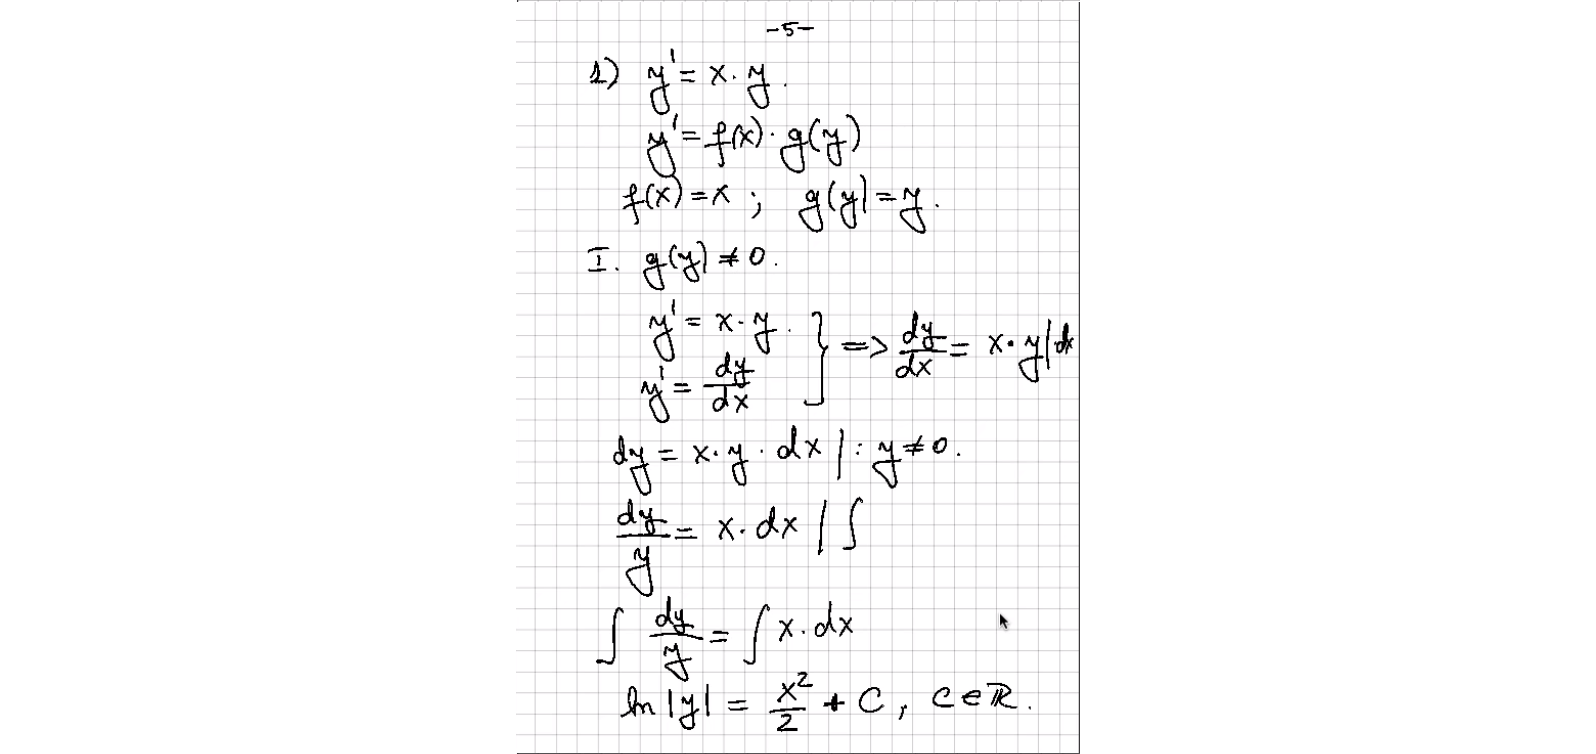 -5-
1) y' = x · y.
y' = f(x) · g(y)
f(x) = x ; g(y) = y.
I. g(y) ≠ 0.
y' = x · y. } => dy/dx = x · y | dx
y' = dy/dx
dy = x · y · dx | : y ≠ 0.
dy/y = x · dx | ∫
∫ dy/y = ∫ x · dx
ln |y| = x²/2 + C, C ∈ ℝ.